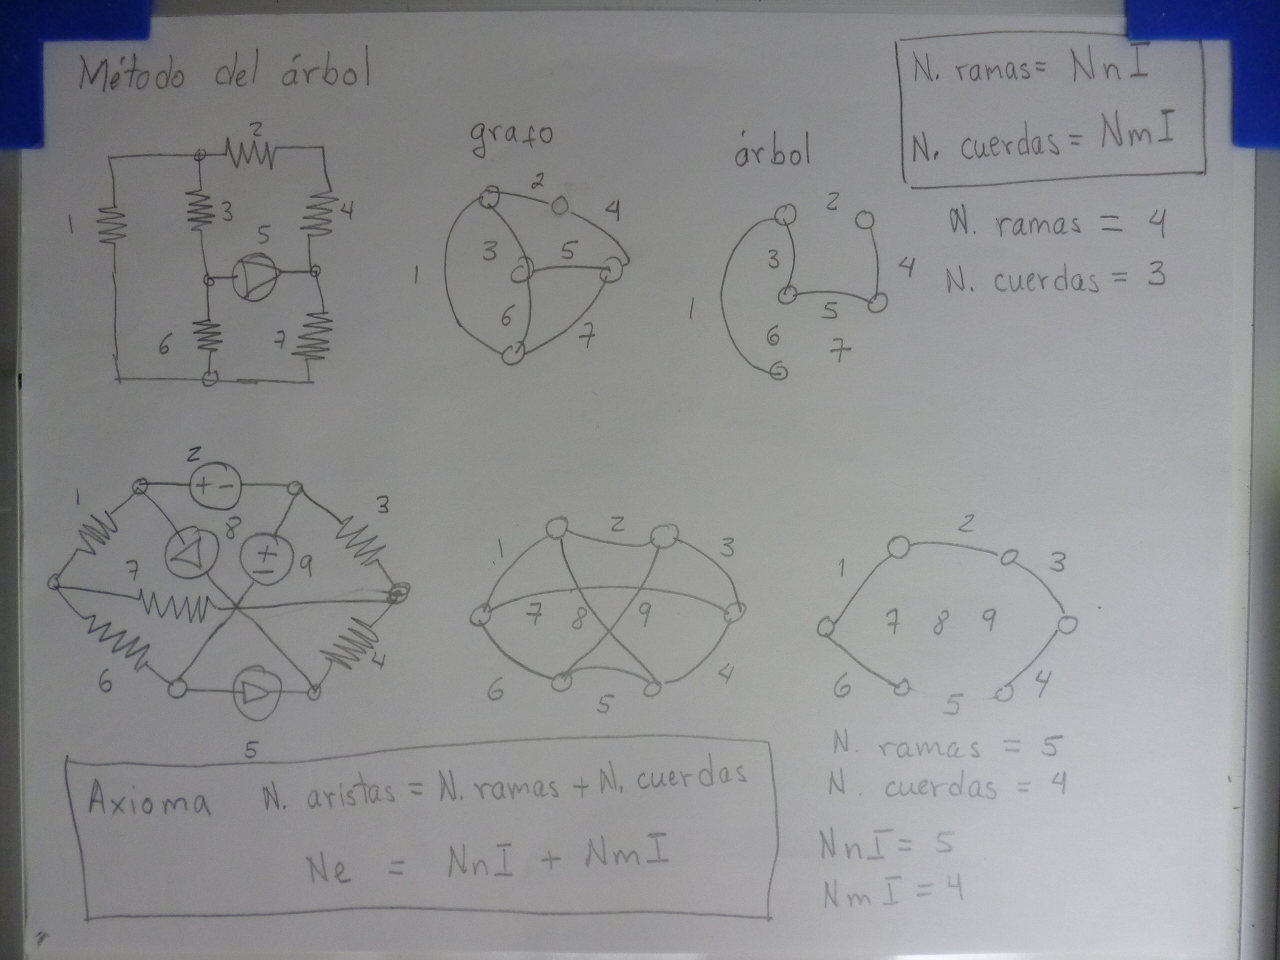 Método del árbol
N. ramas = NnI
N. cuerdas = NmI
grafo
árbol
N. ramas = 4
N. cuerdas = 3
1
2
3
4
5
6
7
1
2
3
4
5
6
7
1
2
3
4
5
6
7
1
2
3
4
5
6
7
8
9
+ -
±
1
2
3
4
5
6
7
8
9
1
2
3
4
5
6
7
8
9
N. ramas = 5
N. cuerdas = 4
NnI = 5
NmI = 4
Axioma N. aristas = N. ramas + N. cuerdas
Ne = NnI + NmI